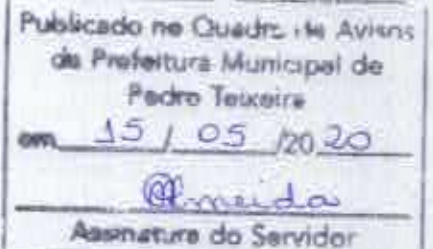 Publicado no Quadro de Avisos
da Prefeitura Municipal de
Pedro Teixeira
em 15 / 05 /20 20
Almeida
Assinatura do Servidor